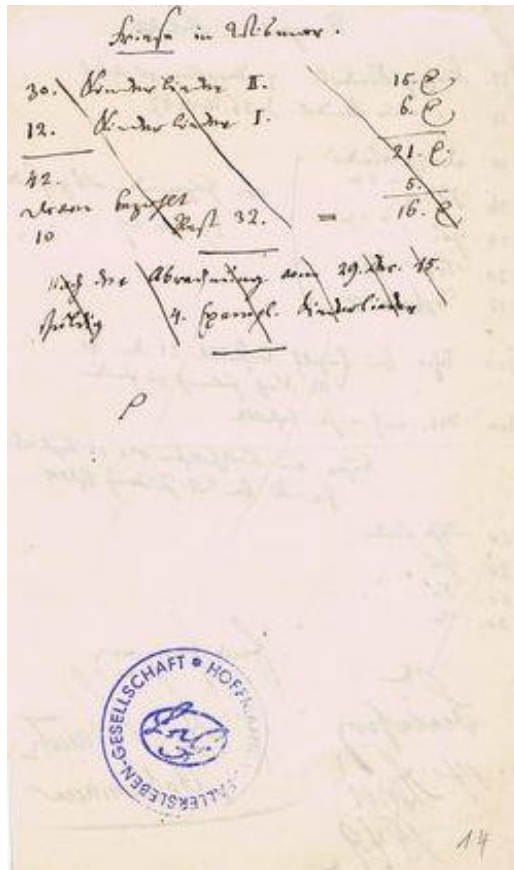 Kriese in Wismar.
30. Kinderlieder II. 15. 
12. Kinderlieder I. 6. 
21. 
42. 5.
davon bezahlt 16. 
10 Rest 32. =
Nach der Abrechnung vom 29. 15
schuldig 4. Exempl. Kinderlieder
HOFFMANN FALLERSLEBEN-GESELLSCHAFT
14